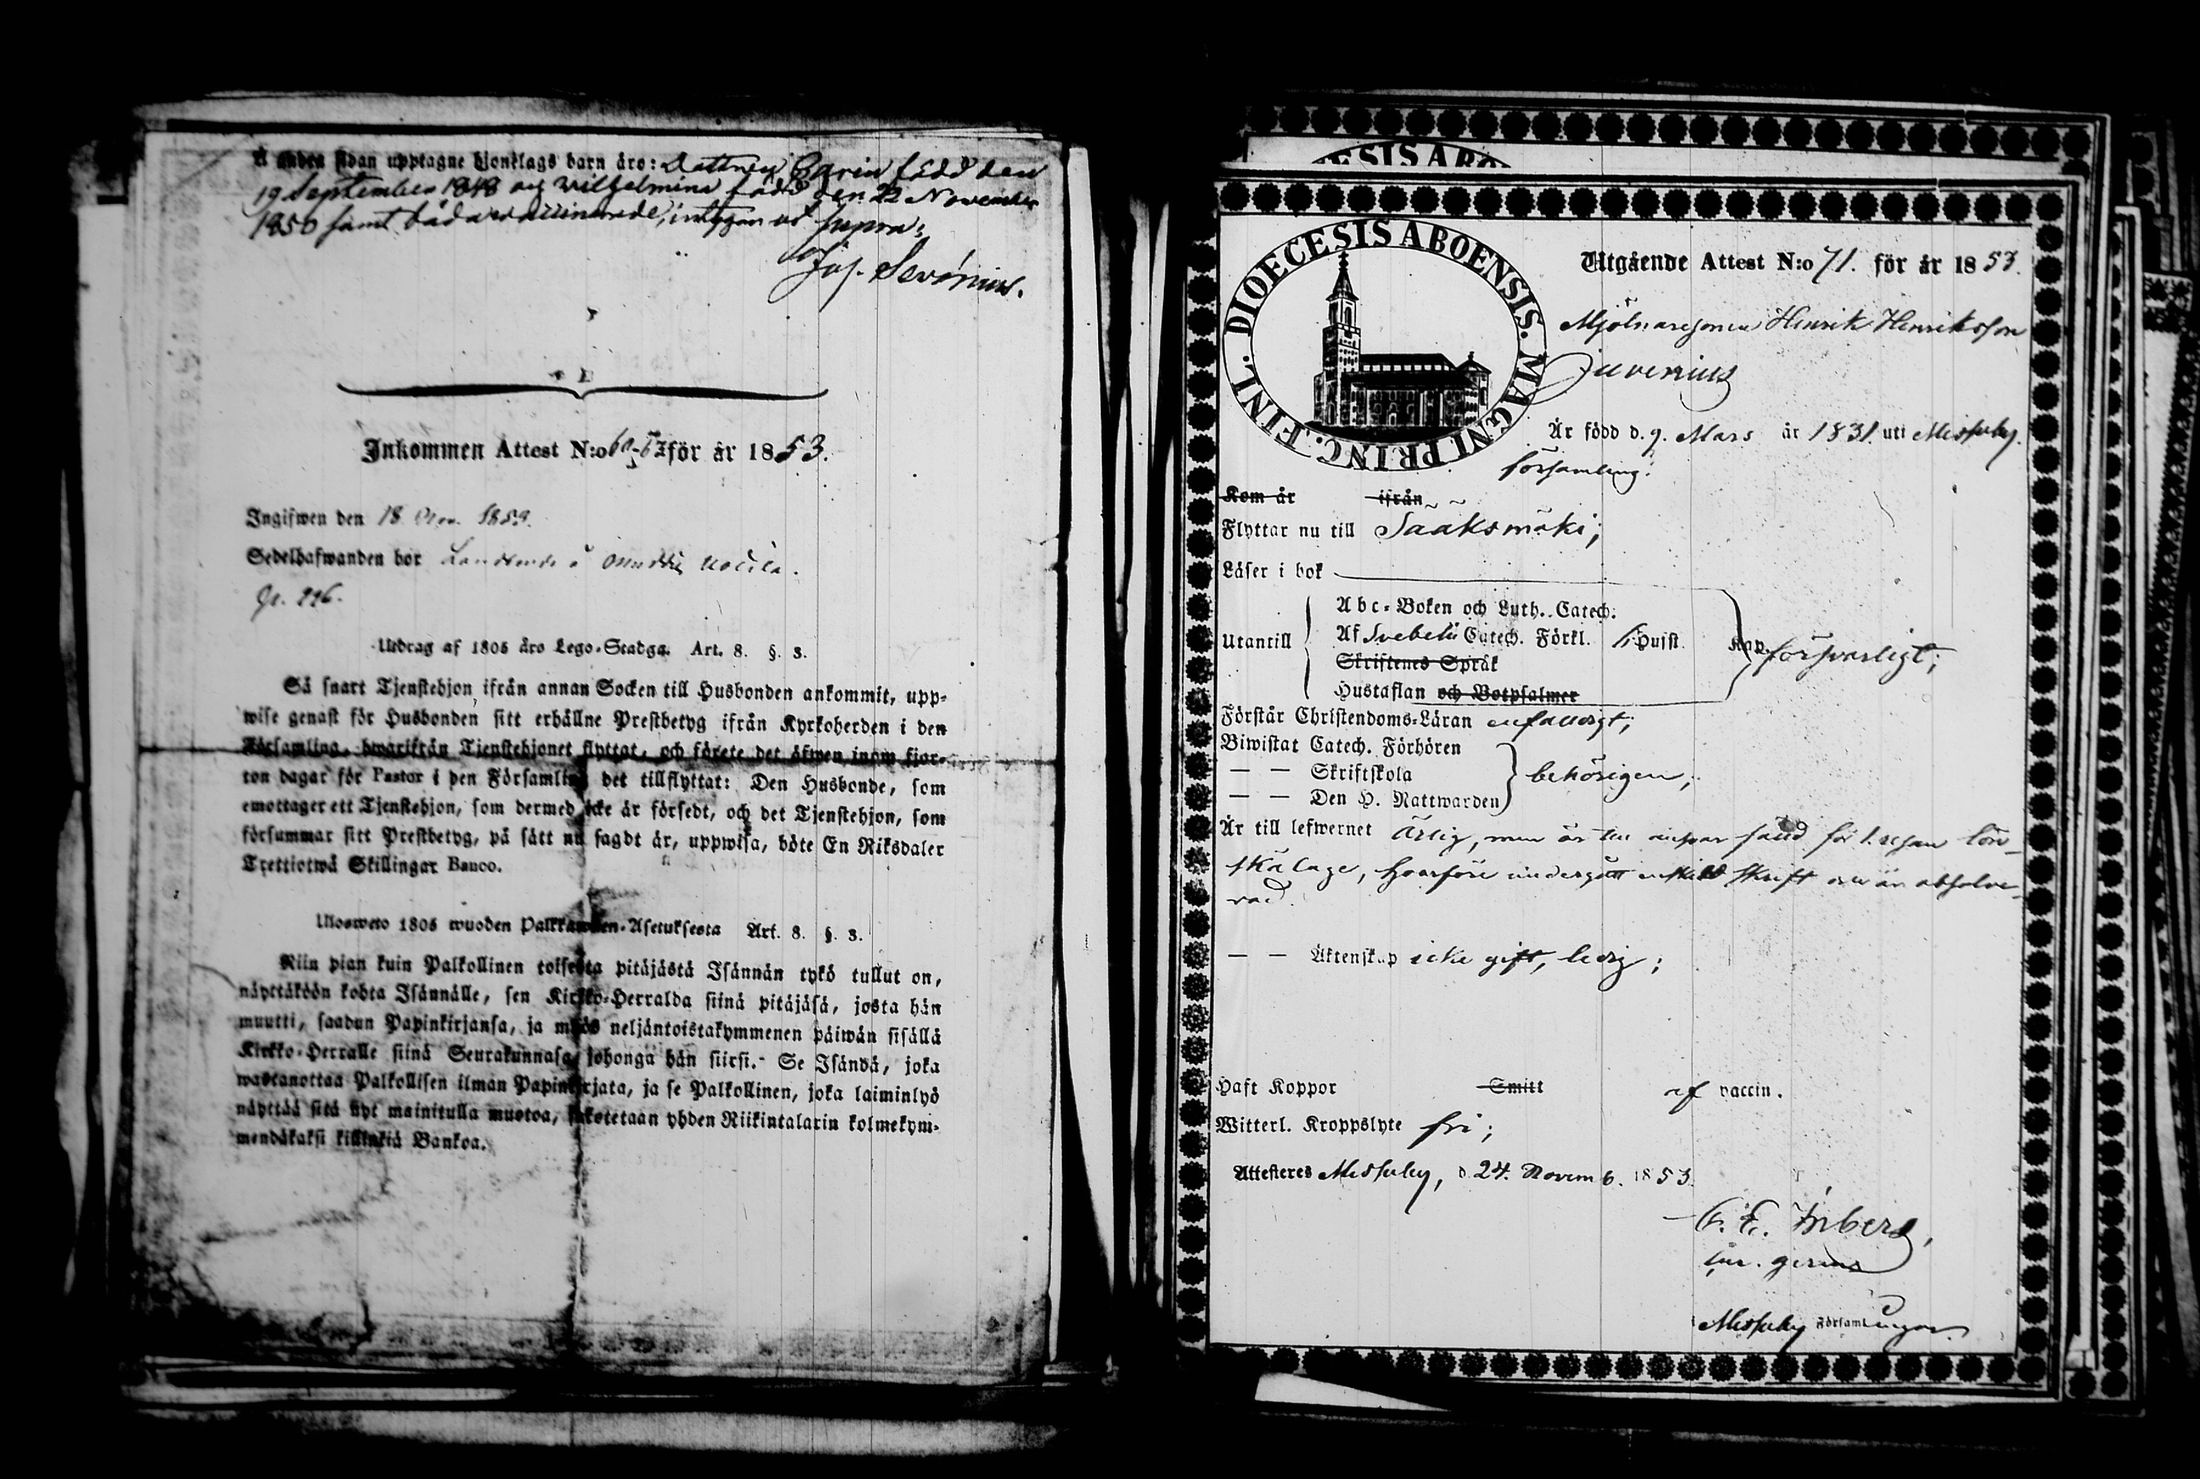 Å andra sidan upptagne hjonelags barn äro: Dottren Carin född den
19 September 1848 och Wilhelmina född den 22 November
1850 samt båda vaccinerade, intygar ut supra:
Jos. Sevónius.
Inkommen Attest N:o 60-62 för år 1853.
Ingifwen den 18
Sedelhafwanden bor
Utdrag af 1805 års Lego-Stadga. Art. 8. §. 3.
Så snart Tjenstehjon ifrån annan Socken till Husbonden ankommit, upp-
wise genast för Husbonden sitt erhållne Prestbetyg ifrån Kyrkoherden i den
Församling, hwarifrån Tjenstehjonet flyttat, och förete det äfwen inom fjor-
ton dagar för Pastor i den Församling det tillflyttat: Den Husbonde, som
emottager ett Tjenstehjon, som dermed icke är försedt, och det Tjenstehjon, som
försummar sitt Prestbetyg, på sätt nu sagdt är, uppwisa, böte En Riksdaler
Trettiotwå Skillingar Banco.
Ulosweto 1805 wuoden Palkkawäen-Asetuksesta Art. 8. §. 3.
Niin pian kuin Palkollinen toisesta pitäjästä Isännän tykö tullut on,
näyttäköön kohta Isännälle, sen Kirkko-Herralda siinä pitäjäsä, josta hän
muutti, saadun Papinkirjansa, ja myös neljäntoistakymmenen päiwän sisällä
Kirkko-Herralle siinä Seurakunnasa johonga hän siirsi. Se Isändä, joka
wastanottaa Palkollisen ilman Papinkirjata, ja se Palkollinen, joka laiminlyö
näyttää sitä nyt mainitulla muotoa, sakotetaan yhden Riikintalarin kolmekym-
mendäkaksi killinkiä Bankoa.
DIOECESIS ABOENSIS. MAGNI PRINC. FINL.
Utgående Attest N:o 71. för år 1853.
Mjölnaregossen Henrik Henriksson
Juvenius
Är född d. 9. Mars år 1831. uti Messuby
församling.
Kom år ifrån
Flyttar nu till Sääksmäki;
Läser i bok
Utantill
Abc-Boken och Luth. Catech.
Af Svebelii Catech. Förkl. Hufst. Kap. försvarligt;
Skriftenes Språk
Hustaflan och Botpsalmer
Förstår Christendoms-Läran enfaldigt;
Biwistat Catech. Förhören
— — Skriftskola behörigen;
— — Den H. Nattwarden
Är till lefwernet Ärlig, men är för
lägersmål
— — Äktenskap icke gift, ledig;
Haft Koppor Smitt af vaccin.
Witterl. Kroppslyte fri;
Attesteras Messuby, d 24. Novemb. 1853
Messuby Församlingar.